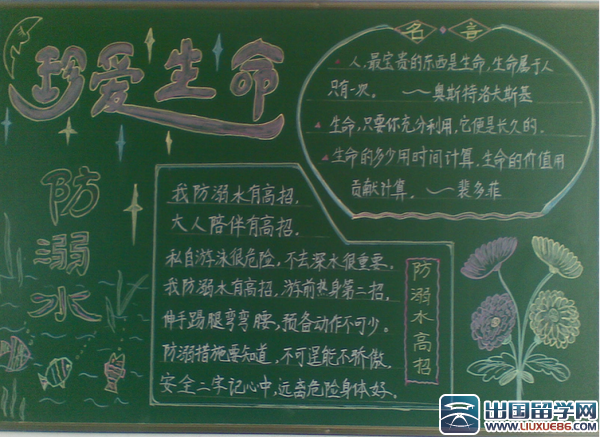 珍爱生命
防溺水
名言
▲人,最宝贵的东西是生命,生命属于人
只有一次。 ——奥斯特洛夫斯基
▲生命,只要你充分利用,它便是长久的.
▲生命的多少用时间计算,生命的价值用
贡献计算。 ——裴多菲
我防溺水有高招,
大人陪伴有高招.
私自游泳很危险,不去深水很重要。
我防溺水有高招,游前热身第二招.
伸手踢腿弯弯腰,预备动作不可少。
防溺措施要知道,不可逞能不骄傲.
安全二字记心中,远离危险身体好。
防溺水高招
出国留学网
WWW.LIUXUE86.COM